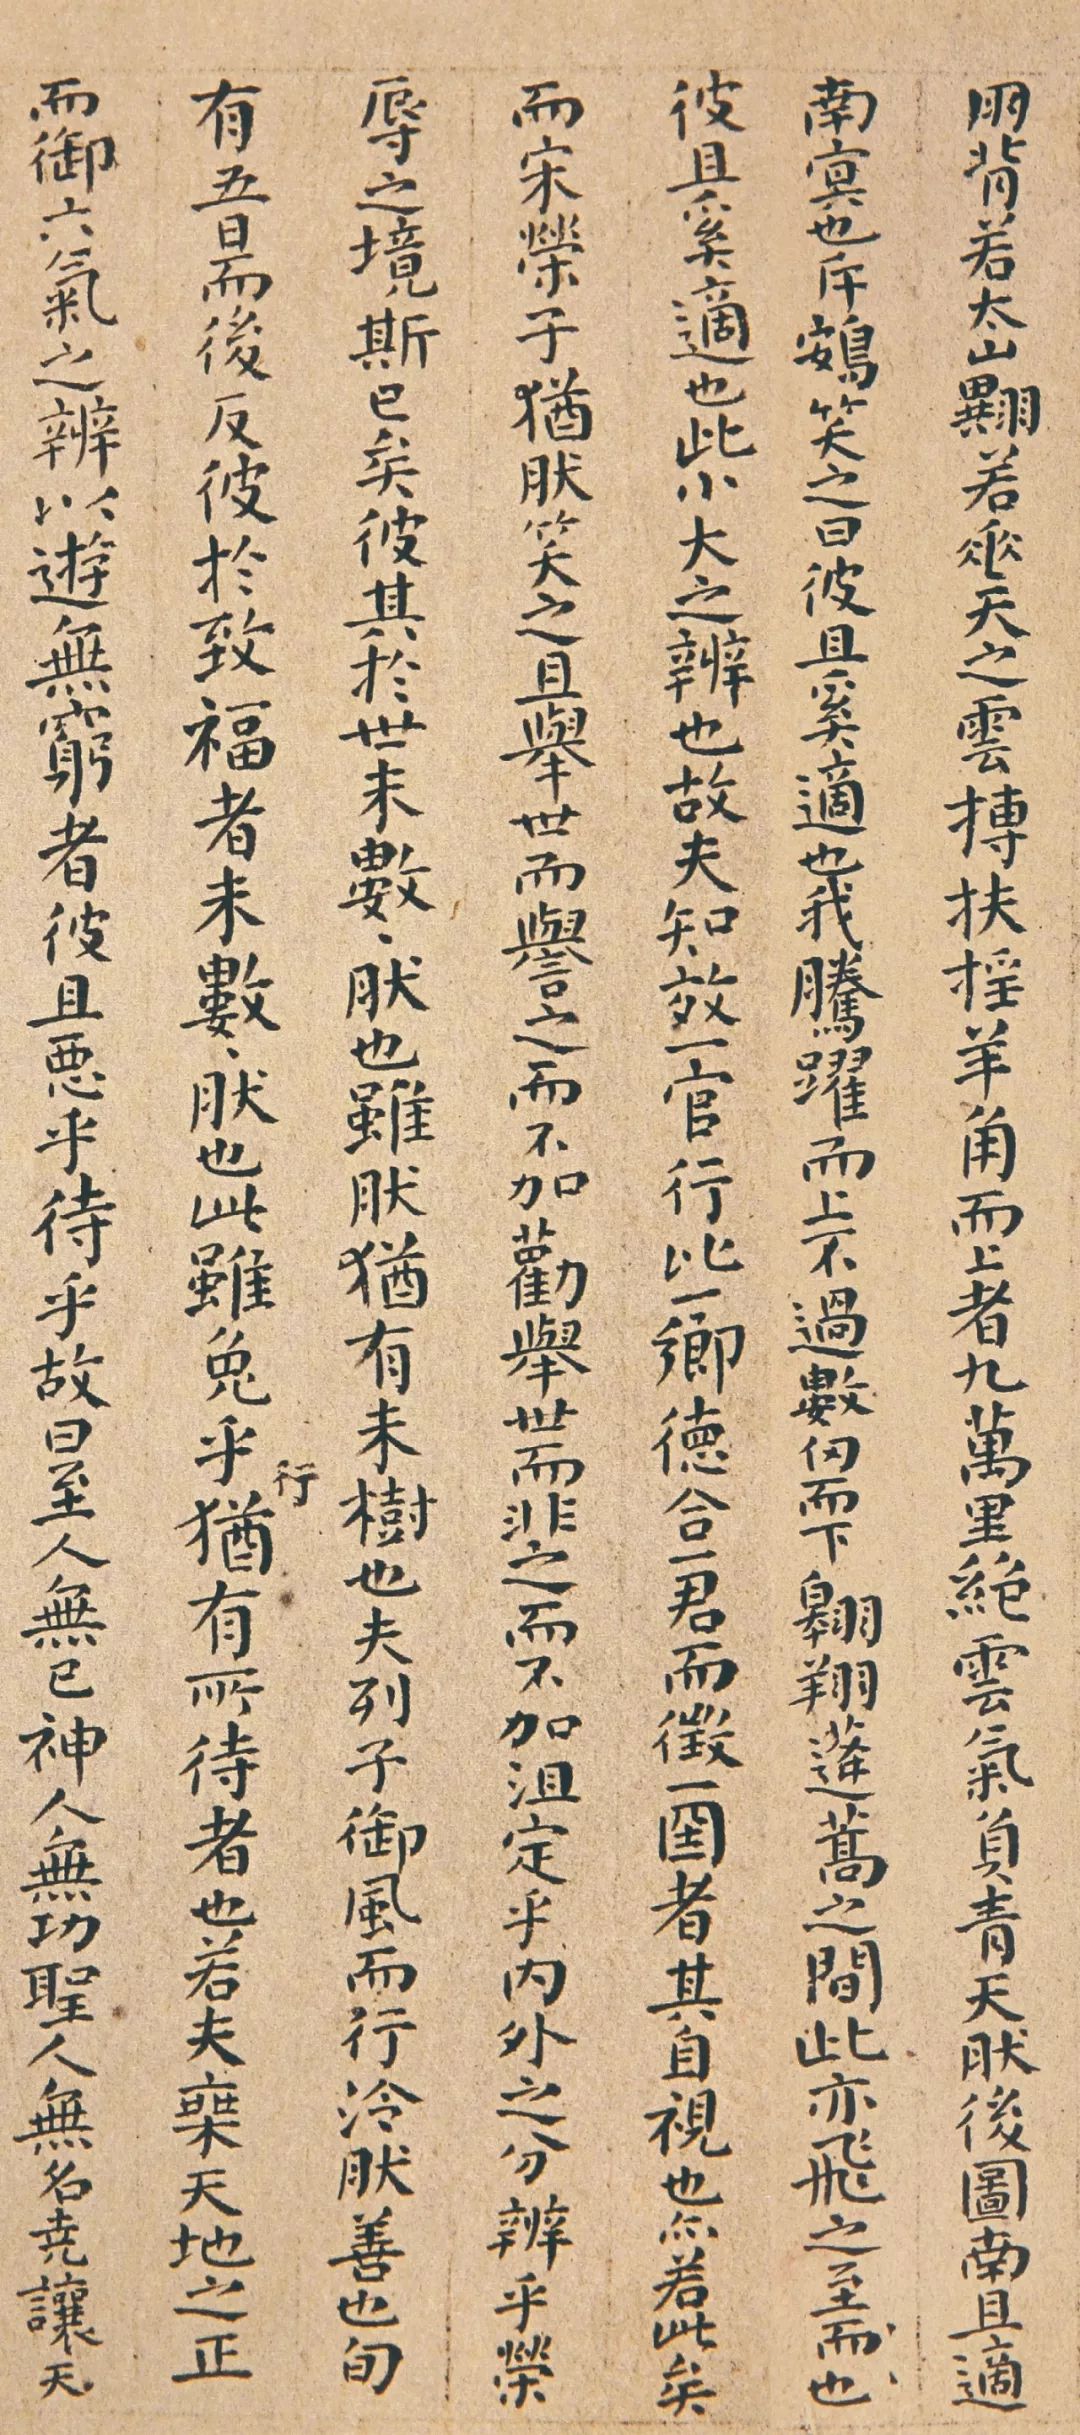 朋背若太山翼若垂天之雲搏扶摇羊角而上者九萬里絕雲氣負青天然後圖南且適
南冥也斥鴳笑之曰彼且奚適也我騰躍而上不過數仞而下翱翔蓬蒿之間此亦飛之至而也
彼且奚適也此小大之辨也故夫知效一官行比一鄉德合一君而徵一國者其自視也亦若此矣
而宋榮子猶然笑之且舉世而譽之而不加勸舉世而非之而不加沮定乎內外之分辨乎榮
辱之境斯已矣彼其於世未數、然也雖然猶有未樹也夫列子御風而行泠然善也旬
有五日而後反彼於致福者未數、然也此雖免乎行猶有所待者也若夫乘天地之正
而御六氣之辨以遊無窮者彼且惡乎待乎故曰至人無己神人無功聖人無名堯讓天